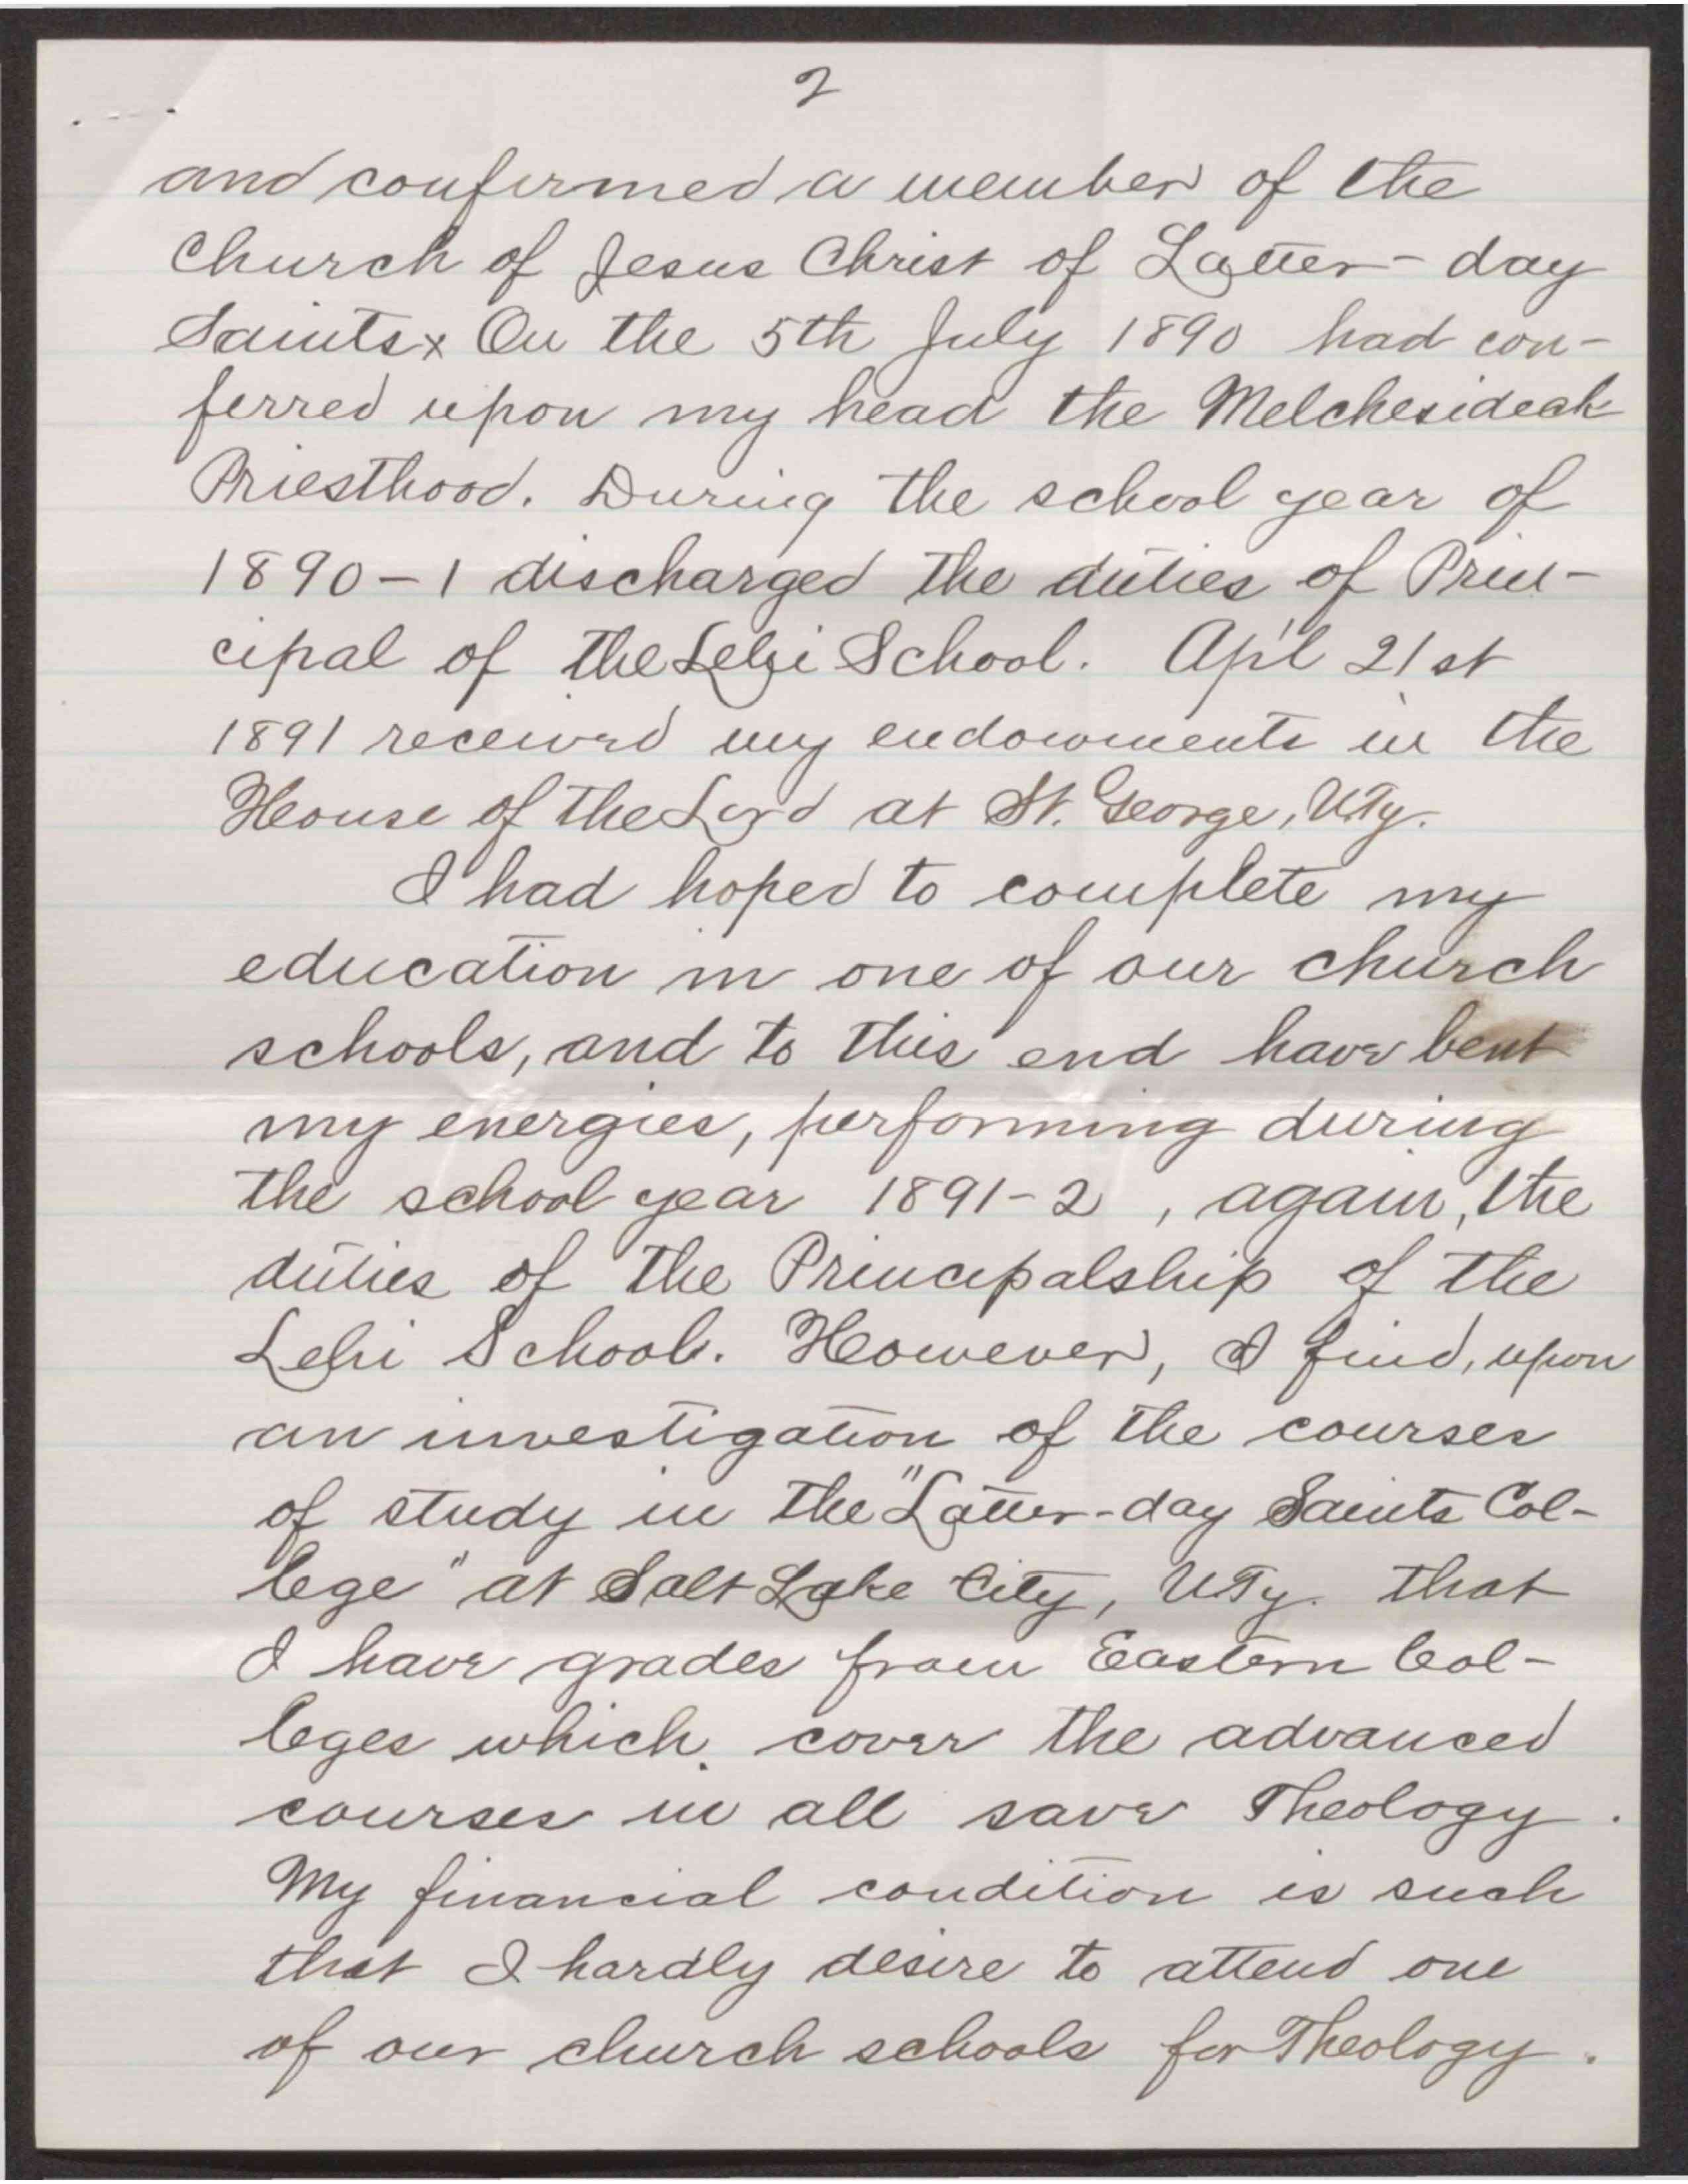 2
and confirmed a member of the
Church of Jesus Christ of Latter-day
Saints x On the 5th July 1890 had con-
ferred upon my head the Melchesideak
Priesthood. During the school year of
1890-1 discharged the duties of Prin-
cipal of the Lehi School. Ap'l 21st
1891 received my endowments in the
House of the Lord at St. George, UTy.
I had hoped to complete my
education in one of our church
schools, and to this end have bent
my energies, performing during
the school year 1891-2, again, the
duties of the Principalship of the
Lehi School. However, I find, upon
an investigation of the courses
of study in the "Latter-day Saints Col-
lege" at Salt Lake City, UTy. that
I have grades from Eastern Col-
leges which cover the advanced
courses in all save Theology.
My financial condition is such
that I hardly desire to attend one
of our church schools for Theology.